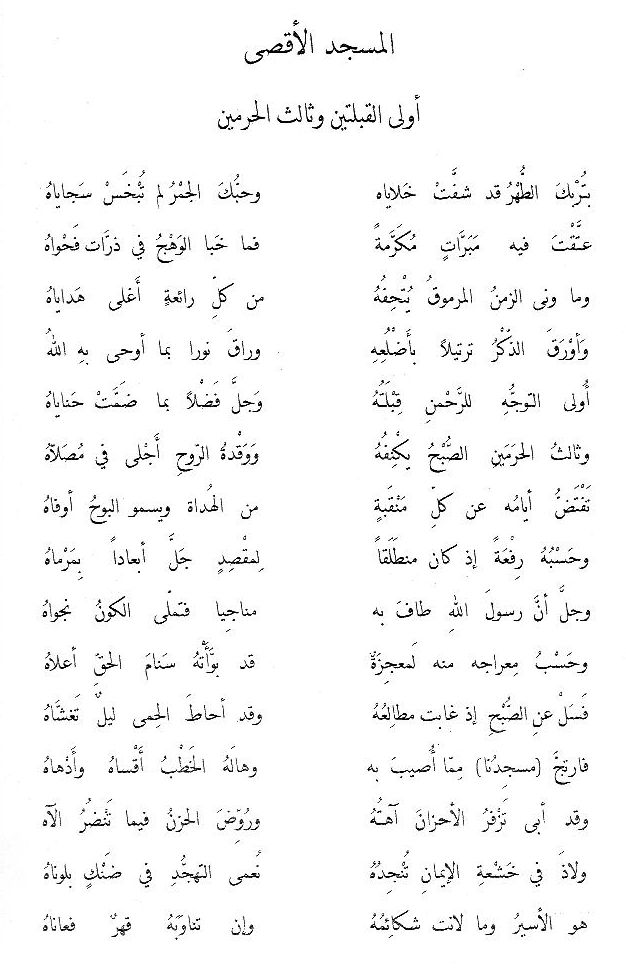 المسجد الأقصى
أولى القبلتين وثالث الحرمين
بتُرْبكَ الطُّهْرُ قد شفَّتْ خَلاياه وحبُّكَ الجَمْرُ لم تُبْخَسْ سَجاياهُ
عتَّقْتَ فيه مَبَرَّاتٍ مُكَرَّمةً فما خَبا الوَهْجُ في ذرَّات فَحْواهُ
وما ونى الزمنُ المرموقُ يُتْحِفُهُ من كلِّ رائعةٍ أَغلى هَداياهُ
وَأوْرَقَ الذّكْرُ ترتيلاً بأَضْلُعِهِ وراقَ نورا بما أوحى بهِ اللهُ
أُولى التوجُّهِ للرَّحْمنِ قِبْلَتُهُ وَجَلَّ فَضْلاً بما ضَمَّتْ حَناياهُ
وثالثُ الحرَمَينِ الصُّبْحُ يكْنِفُهُ وَوَقْدةُ الرّوحِ أَجْلى في مُصَلاّهُ
تَفْتَضُّ أيامُه عن كلِّ مَنْقَبةٍ من الهُداة ويسمو البوحُ أوفاهُ
وحَسْبُهُ رِفْعَةً إذ كان منطلَقاً لِمقْصِدٍ جَلَّ أبعاداً بِمَرْماهُ
وجلَّ أنَّ رسولَ اللهِ طافَ به مناجيا فتملّى الكونُ نجواهُ
وحَسْبُ مِعراجه منه لَمعجزَةٌ قد بوَّأتْهُ سَنامَ الحقِّ أعلاهُ
فَسَلْ عنِ الصُّبْحِ إذ غابت مطالِعُهُ وقد أحاطَ الحِمى ليلٌ تَغشَّاهُ
فارتجَّ (مسجدُنا) مِمّا أُصيبَ به وهالَهُ الخَطْبُ أَقْساهُ وأَدْهاهُ
وقد أبى تَزْفرُ الأحزانَ آهتُهُ ورُوِّضَ الحزنُ فيما تَنْضُرُ الآه
ولاذَ في خَشْعةِ الإيمانِ تُنْجدُهُ نُعمى التهجُّدِ في ضَنْكٍ بلوناهُ
هو الأسيرُ وما لانت شكائِمُهُ وإن تناوَبَهُ قهرٌ فعاناهُ